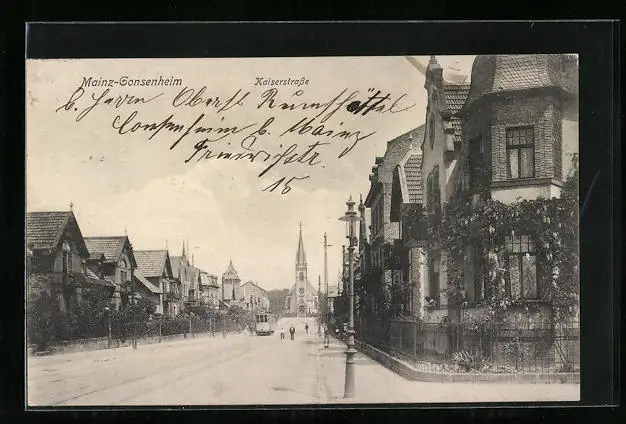 Mainz-Gonsenheim Kaiserstraße
b. Herrn Oberst Rumschöttel
Gonsenheim b. Mainz
Friedrichstr.
15